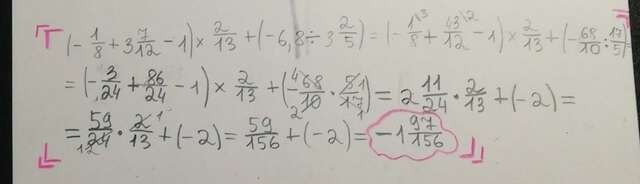 (-1/8 + 3 7/12 - 1) × 2/13 + (-6,8 ÷ 3 2/5) = (-1/8 \3 + 43/12 \2 - 1) × 2/13 + (-68/10 : 17/5) =
= (-3/24 + 86/24 - 1) × 2/13 + (-68/10 · 5/17) = 2 11/24 · 2/13 + (-2) =
= 59/24 · 2/13 + (-2) = 59/156 + (-2) = -1 97/156